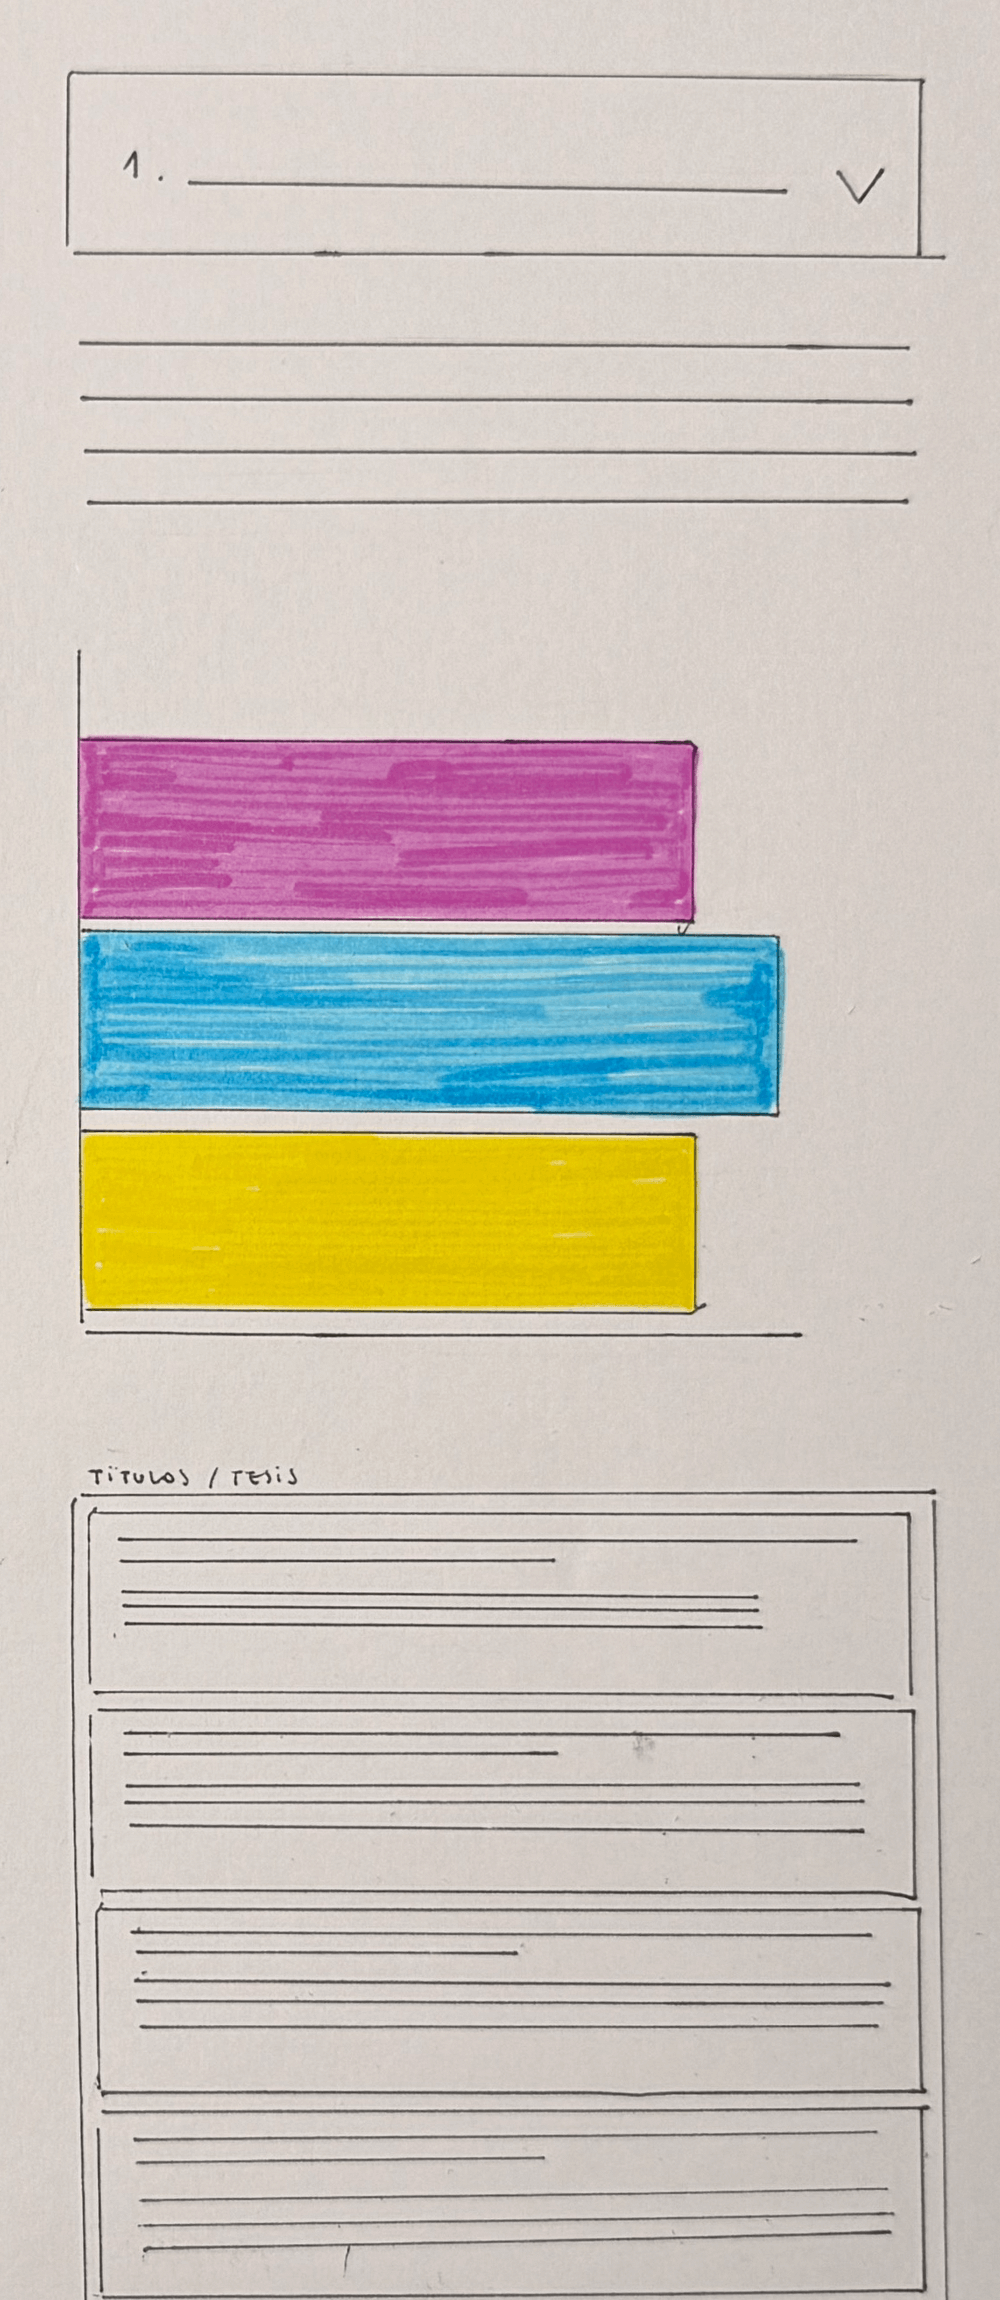 1.
TÍTULOS / TESIS